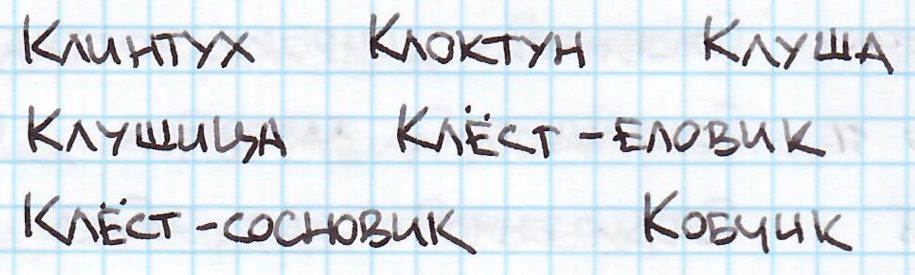 Клинтух Клоктун Клуша
Клушица Клёст-еловик
Клёст-сосновик Кобчик